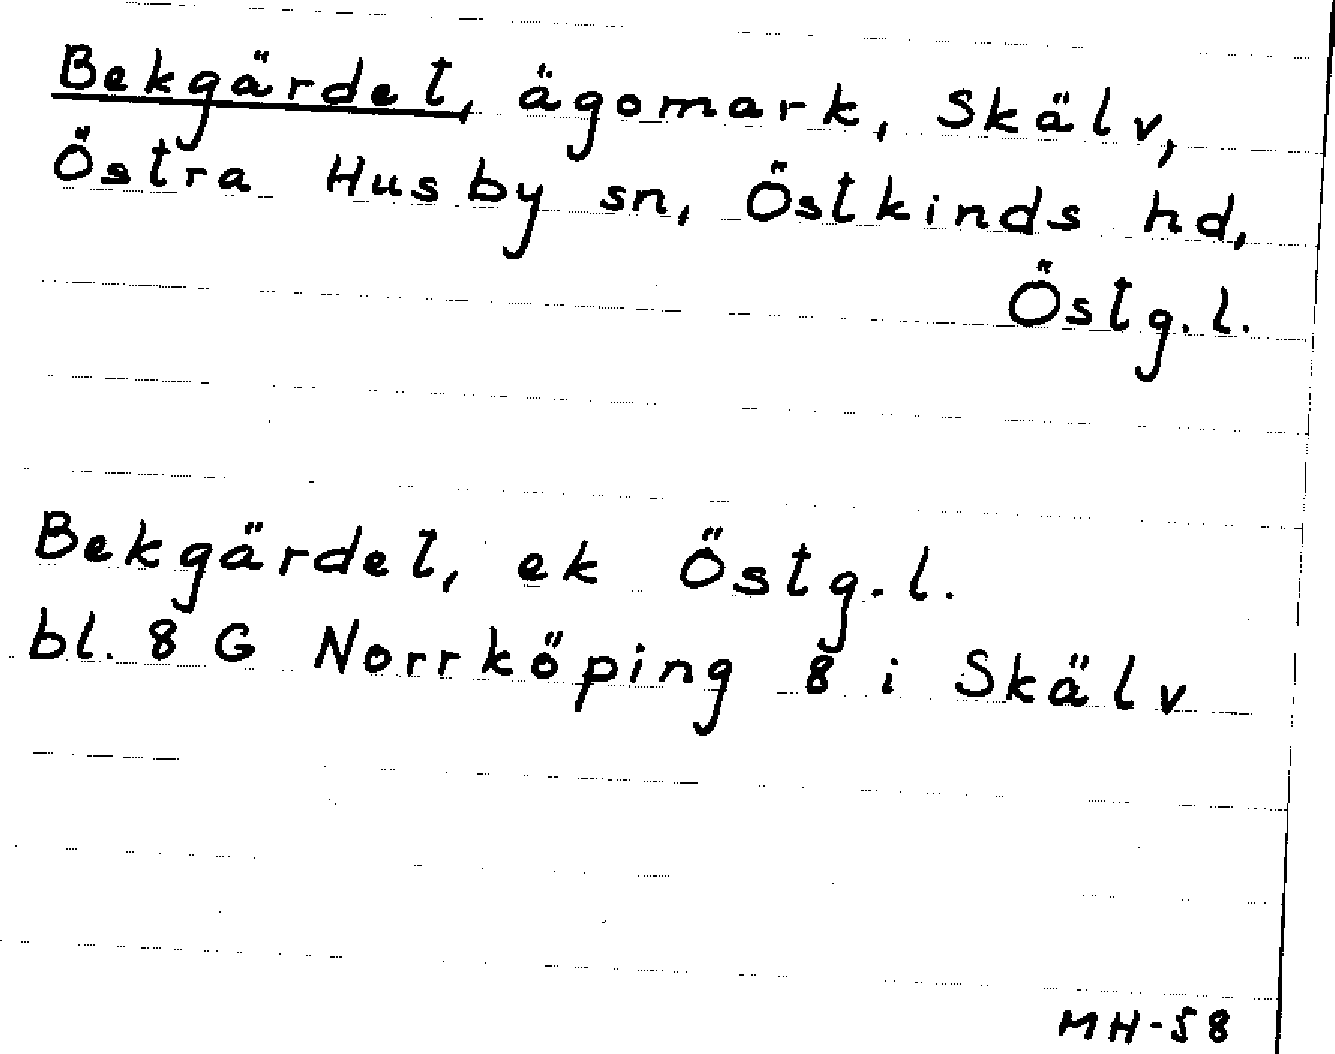 Bekgärdet, ägomark, Skälv,
Östra Husby sn, Östkinds hd,
Östg.l.
Bekgärdet, ek Östg.l.
bl. 8 G Norrköping 8 i Skälv
MH-58